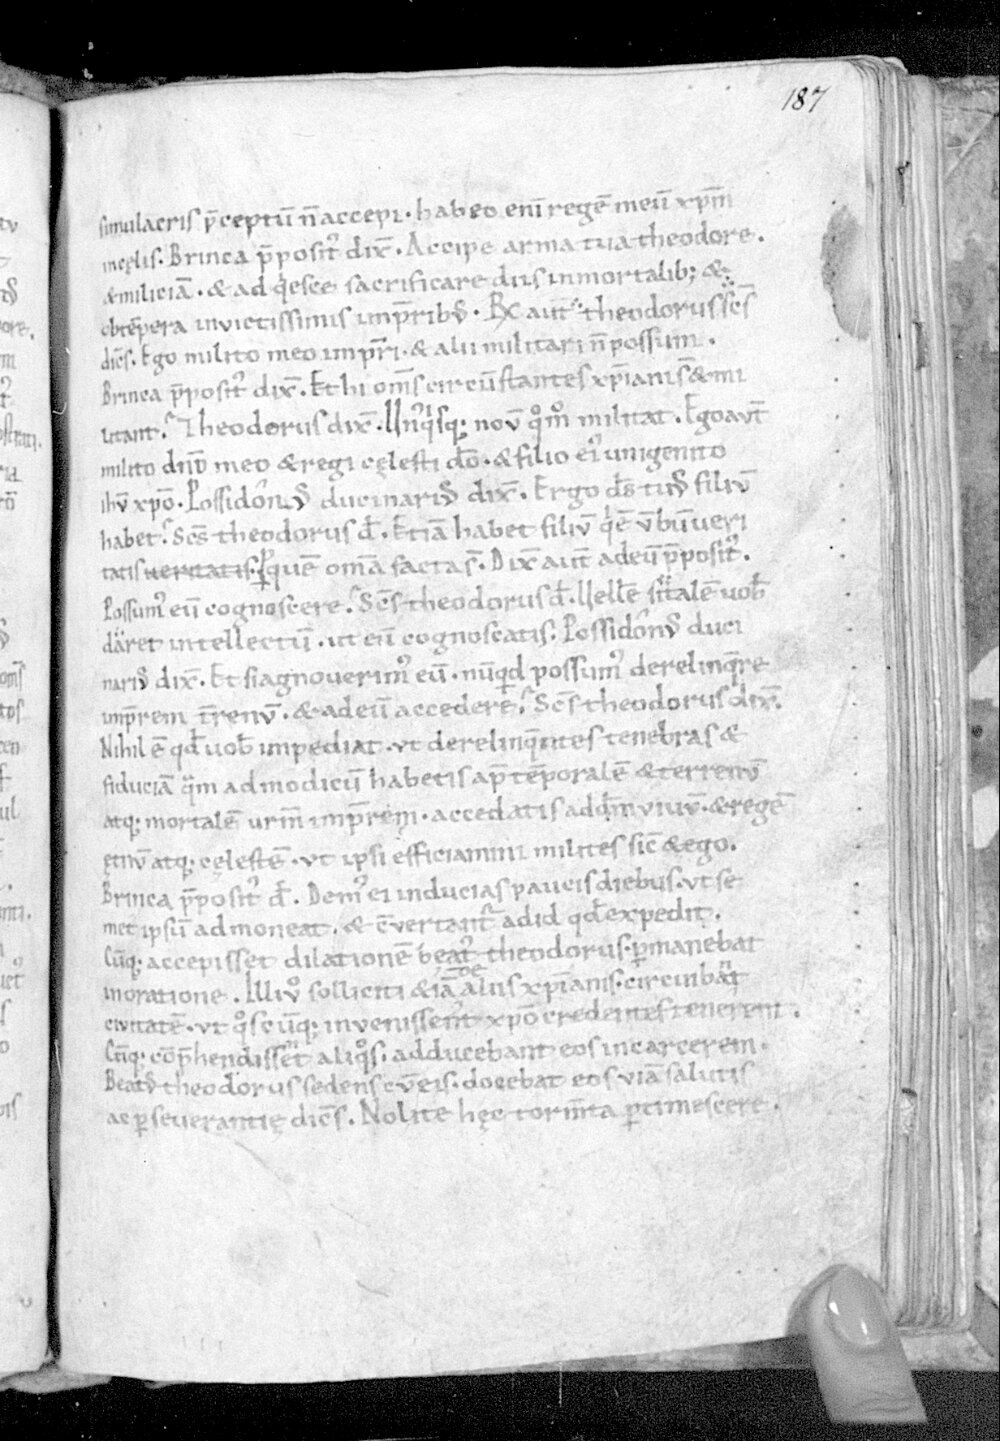 187
simulacris p̄ceptū n̄ accepi · habeo enī regē meū xp̄m
incęlis · Brinca p̄posit᷒ dix̄ · Accipe arma tua theodore ·
& miliciā · & ad q̇esce sacrificare diis inmortalib; &
obtēpera invictissimis imp̄rib᷒ · aut̄ theodorus sc̄s
dic̄s · Ego milito meo imp̄ri · & alii militari n̄ possum ·
Brinca p̄posit᷒ dix̄ · Et hi om̄s circū stantes xp̄ianis & mi
litant · Theodorus dix̄ · Un᷒q̇sq; nov̄ q̊m̊ militat · Ego aut̄
milito dn̄o meo & regi cęlesti dō · & filio ei᷒ unigenito
ihū xp̄o · Possidon᷒ ducinari᷒ dix̄ · Ergo d̄s tu᷒ filiū
habet · Sc̄s theodorus d̄ · Etiā habet filiū q̇ ē v̄bū veri
tatis veritatis · p̱ quē om̄a facta s̄ · Dix̄ aut̄ ad eū p̄posit᷒ ·
Possum᷒ eū cognoscere · Sc̄s theodorus d̄ · Uellē talē uob̄
daret intellectū · ut eū cognoscatis · Possidon᷒ duci
nari᷒ dix̄ · Et si agnoverim᷒ eū · nūqd possum᷒ derelinq̄re
imp̄rem t̄renū · & ad eū accedere · Sc̄s theodorus dix̄ ·
Nihil ē qd̄ uob̄ impediat · ut derelinq̄ntes tenebras &
fiduciā q̄m ad modicū habetis ap̄ tēporalē & terrenū
atq; mortalē urm̄ imp̄rem · accedatis ad dn̄m vivū · & regē
ęt̄nū atq; cęlestē · ut ipsi efficiamini milites sic̄ & ego ·
Brinca p̄posit᷒ d̄ · Dem᷒ ei inducias paucis diebus · ut se
met ipsū ad moneat · & c̄vertat᷒ ad id qd̄ expedit ·
Cūq; accepisset dilationē beat᷒ theodorus · p̱manebat
inoratione · Illi v̊ solliciti & iā de aliis xp̄ianis · circuibāt
civitatē · ut q̊scūq; invenissent xp̄o credentes tenerent ·
Cūq; cōp̄hendissēt aliq̊s · adducebant eos in carcerem ·
Beat᷒ theodorus sedens cū eis · docebat eos viā salutis
ac p̱severantię dic̄s · Nolite hęc torm̄ta p̱timescere ·